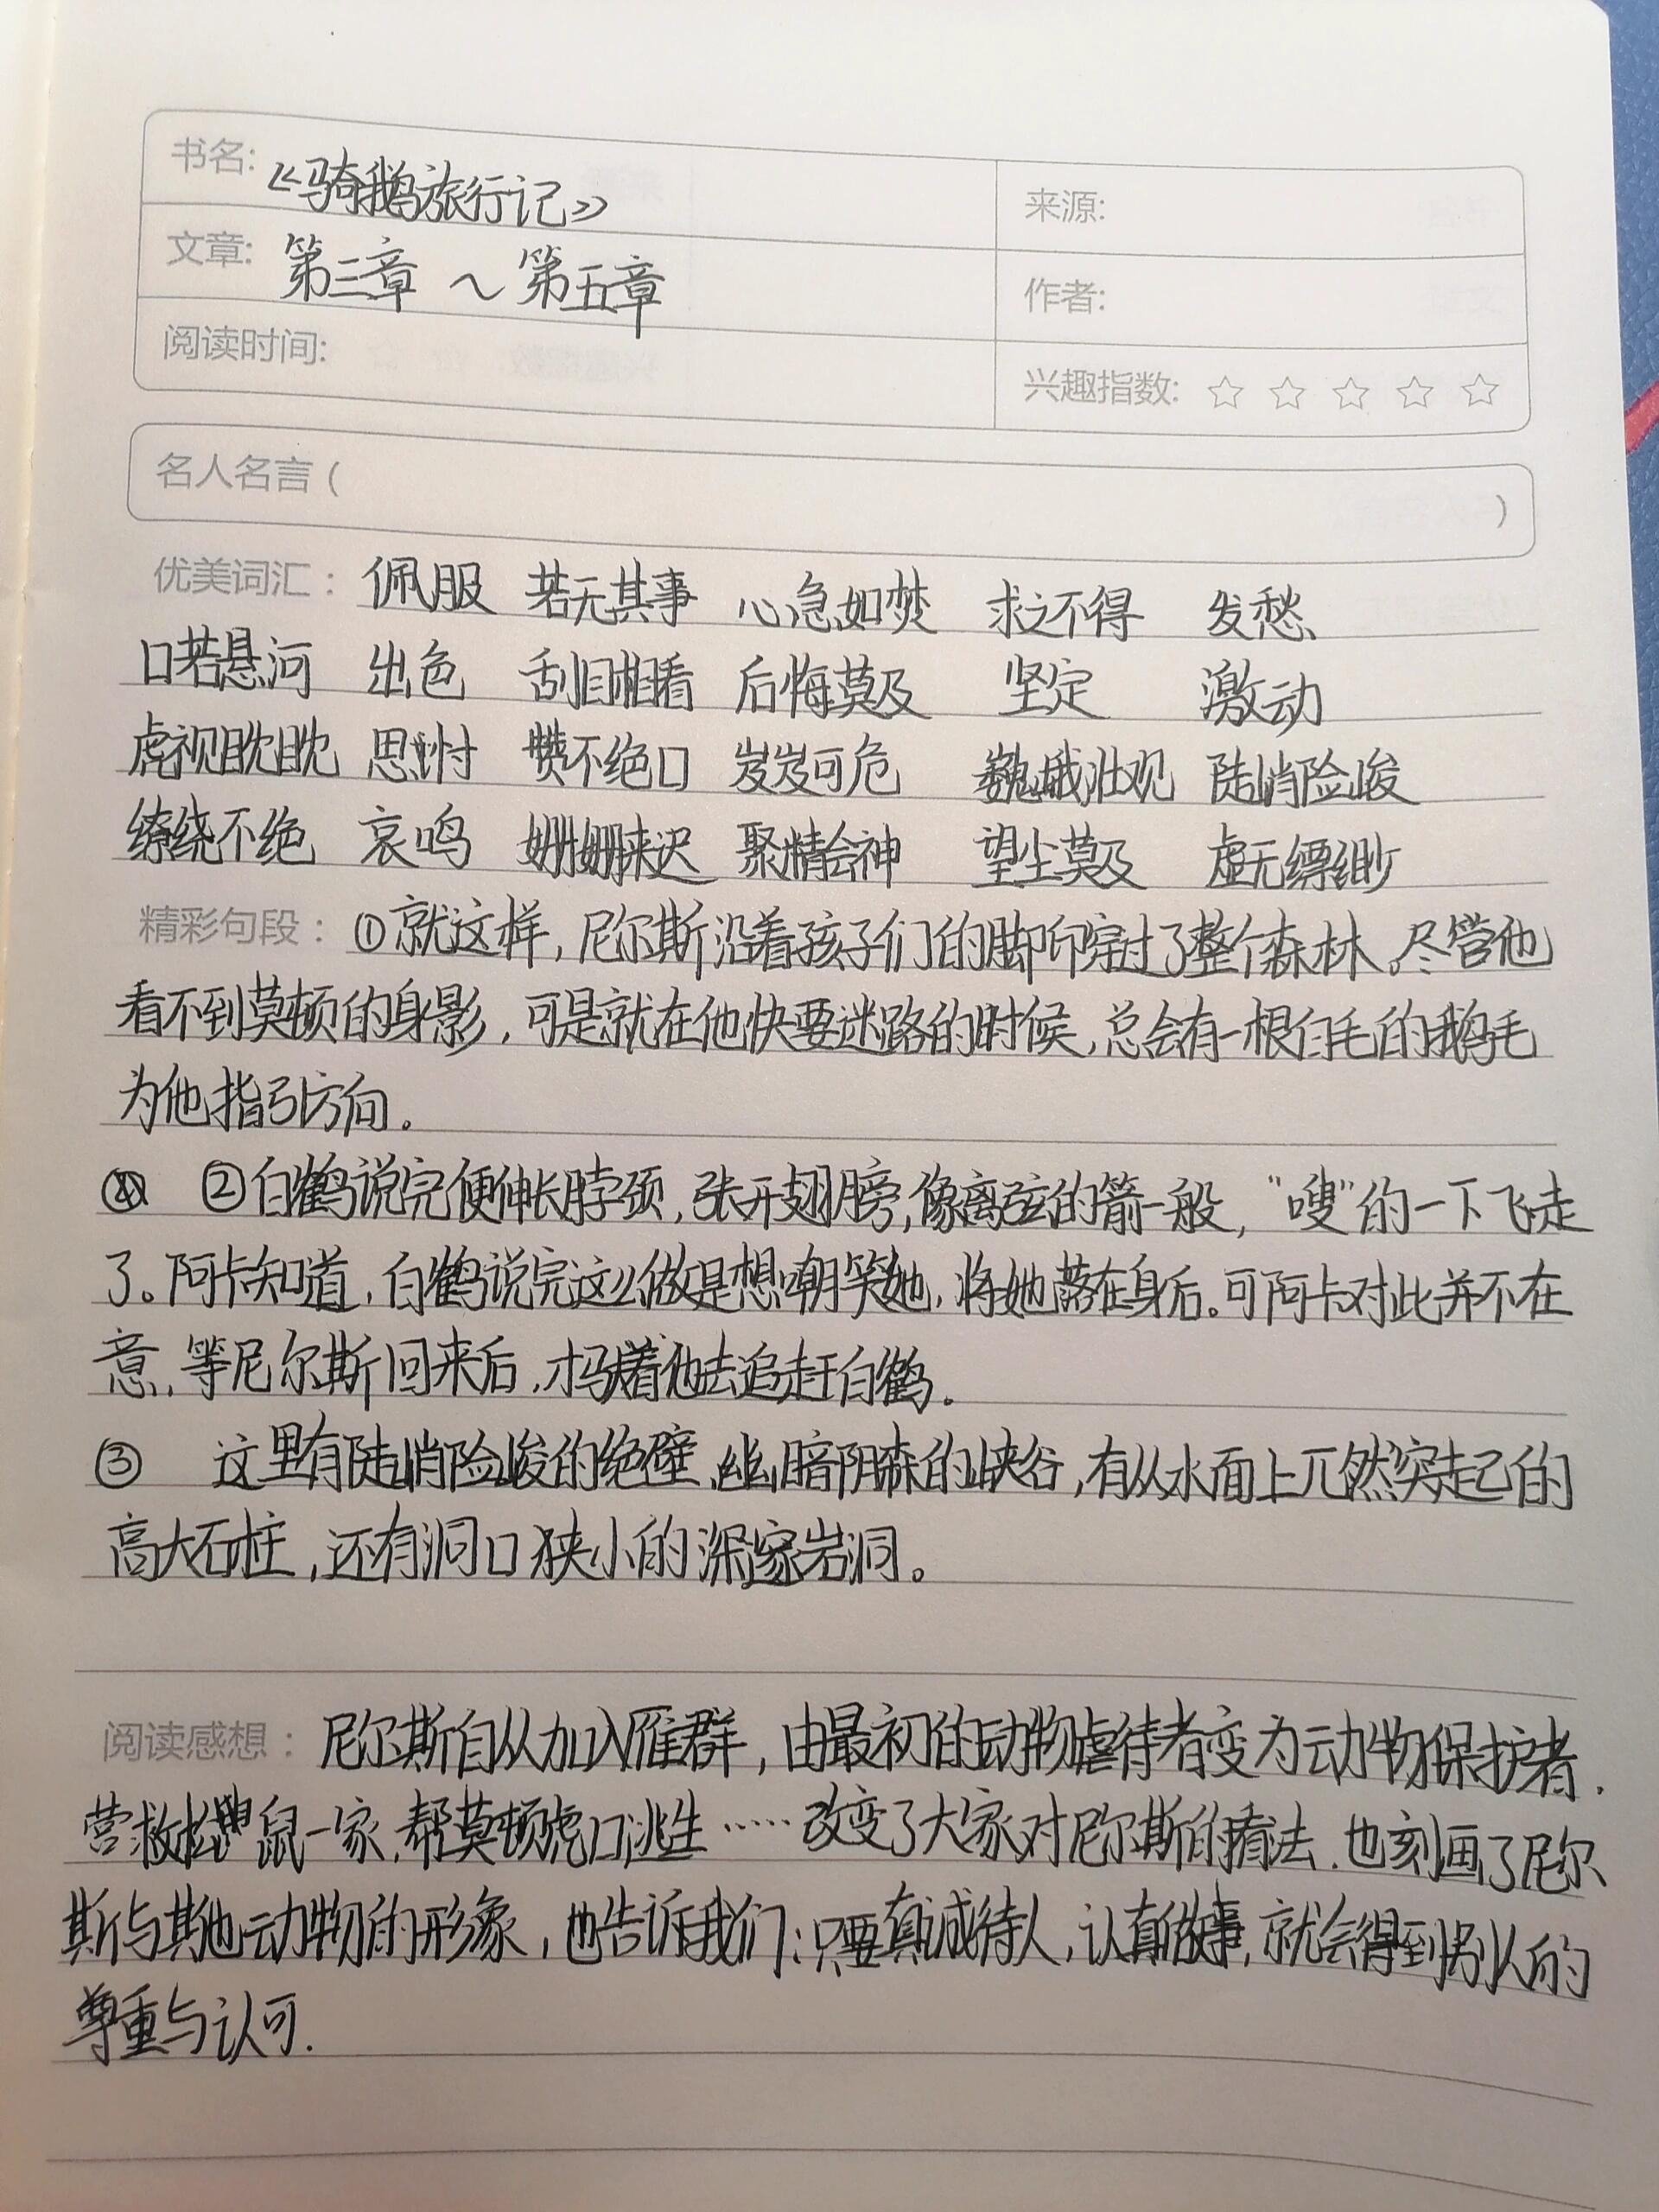 书名: 《骑鹅旅行记》
来源:
文章: 第三章 ~ 第五章
作者:
阅读时间:
兴趣指数: ☆ ☆ ☆ ☆ ☆
名人名言 (  )
优美词汇: 佩服 若无其事 心急如焚 求之不得 发愁
口若悬河 出色 刮目相看 后悔莫及 坚定 激动
虎视眈眈 思忖 赞不绝口 岌岌可危 巍峨壮观 陡峭险峻
缭绕不绝 哀鸣 姗姗来迟 聚精会神 望尘莫及 虚无缥缈
精彩句段: ①就这样,尼尔斯沿着孩子们的脚印穿过了整个森林。尽管他
看不到莫顿的身影,可是就在他快要迷路的时候,总会有一根白毛的鹅毛
为他指引方向。
②白鹤说完便伸长脖颈,张开翅膀,像离弦的箭一般,“嗖”的一下飞走
了。阿卡知道,白鹤说完这么做是想嘲笑她,将她落在身后。可阿卡对此并不在
意,等尼尔斯回来后,才驮着他去追赶白鹤。
③ 这里有陡峭险峻的绝壁、幽暗阴森的峡谷,有从水面上兀然突起的
高大石柱,还有洞口狭小的深邃岩洞。
阅读感想: 尼尔斯自从加入雁群,由最初的动物虐待者变为动物保护者.
营救松鼠一家,帮莫顿虎口逃生……改变了大家对尼尔斯的看法.也刻画了尼尔
斯与其他动物的形象,也告诉我们:只要真诚待人,认真做事,就会得到别人的
尊重与认可.